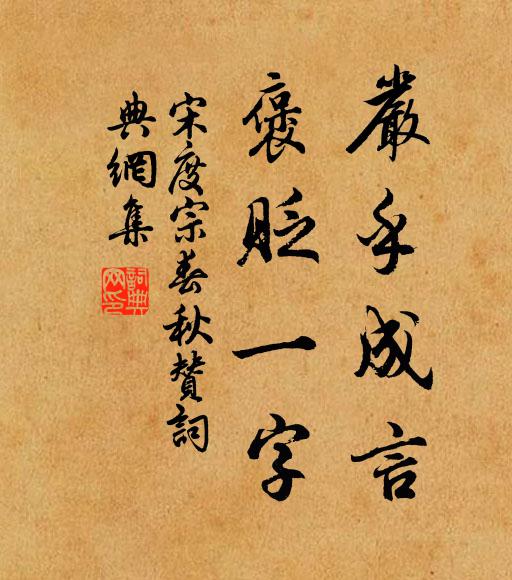 嚴乎成言
褒貶一字
宋度宗春秋賛詞
典網集
詞典网印